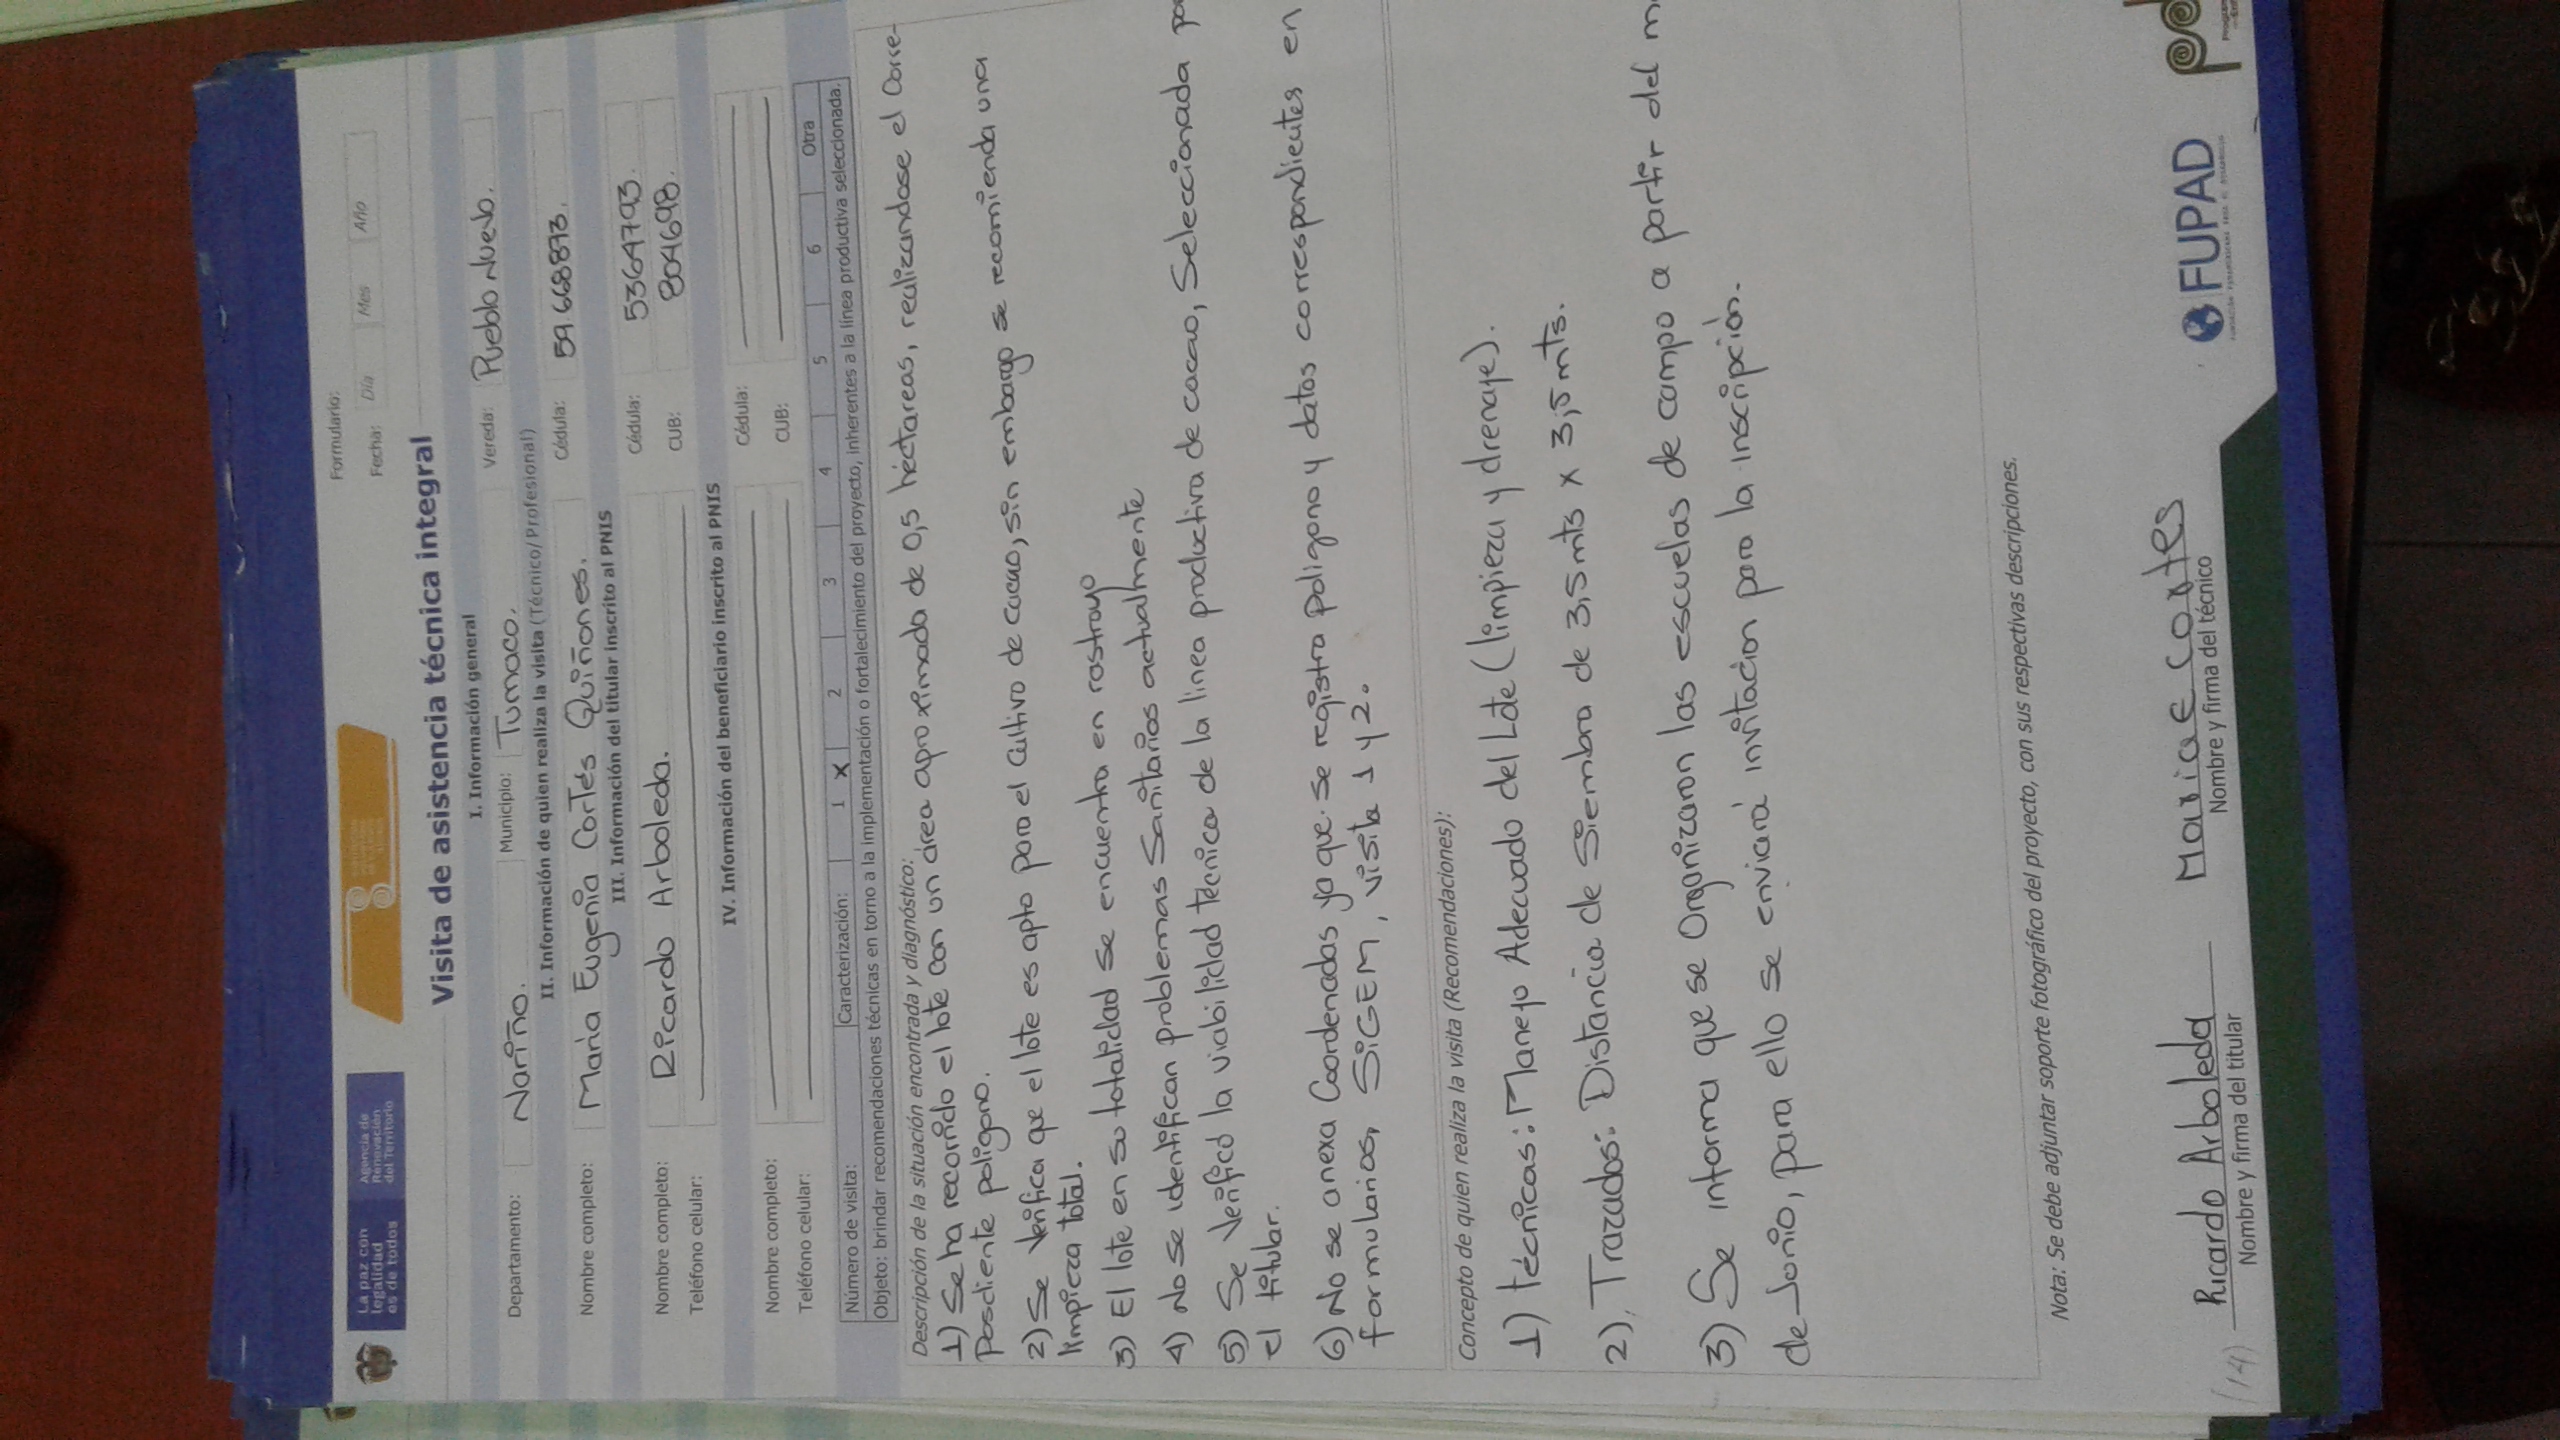 La paz con
legalidad
es de todos
Agencia de
Renovación
del Territorio
Formulario:
Fecha: Día Mes Año
Visita de asistencia técnica integral
I. Información general
Departamento: Nariño. Municipio: Tumaco. Vereda: Pueblo Nuevo.
II. Información de quien realiza la visita (Técnico/Profesional)
Nombre completo: Maria Eugenia Cortés Quiñones. Cédula: 59.668893.
III. Información del titular inscrito al PNIS
Nombre completo: Ricardo Arboleda. Cédula: 5364793.
Teléfono celular: CUB: 804698.
IV. Información del beneficiario inscrito al PNIS
Nombre completo: Cédula:
Teléfono celular: CUB:
Número de visita: Caracterización: 1 X 2 3 4 5 6 Otra
Objeto: brindar recomendaciones técnicas en torno a la implementación o fortalecimiento del proyecto, inherentes a la línea productiva seleccionada.
Descripción de la situación encontrada y diagnóstico:
1) Se ha recorrido el lote con un área aproximada de 0,5 hectareas, realizandose el corre-
posdiente poligono.
2) Se Verifica que el lote es apto para el cultivo de cacao, sin embargo se recomienda una
limpieza total.
3) El lote en su totalidad se encuentra en rastrojo
4) No se identifican problemas Sanitarios actualmente
5) Se Verificó la viabilidad técnica de la linea productiva de cacao, Seleccionada po
el titular.
6) No se anexa Coordenadas ya que se registra poligono y datos correspondientes en
formularios, SiGEM, visita 1 y 2.
Concepto de quien realiza la visita (Recomendaciones):
1) técnicas: Manejo Adecuado del Lote (limpieza y drenaje).
2) Trazados: Distancia de Siembra de 3,5 mts x 3,5 mts.
3) Se informa que se Organizaron las escuelas de campo a partir del m
de Junio, para ello se enviará invitacion para la inscripción.
Nota: Se debe adjuntar soporte fotográfico del proyecto, con sus respectivas descripciones.
(14)
Ricardo Arboleda Maria E Cortes
Nombre y firma del titular Nombre y firma del técnico
FUPAD